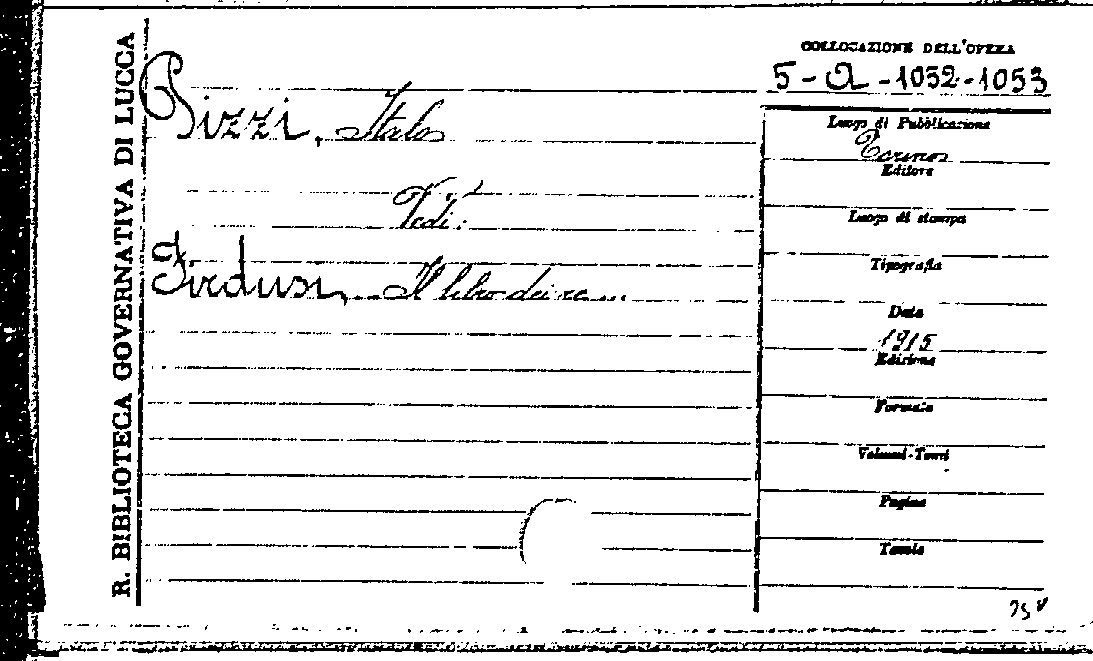 R. BIBLIOTECA GOVERNATIVA DI LUCCA
Pizzi, Italo
Vedi:
Firdusi, Il libro dei re...
COLLOCAZIONE DELL'OPERA
5-a-1052-1053
Luogo di Pubblicazione
Torino
Editore
Luogo di stampa
Tipografia
Data
1915
Edizione
Formato
Volumi-Tomi
Pagine
Tavole